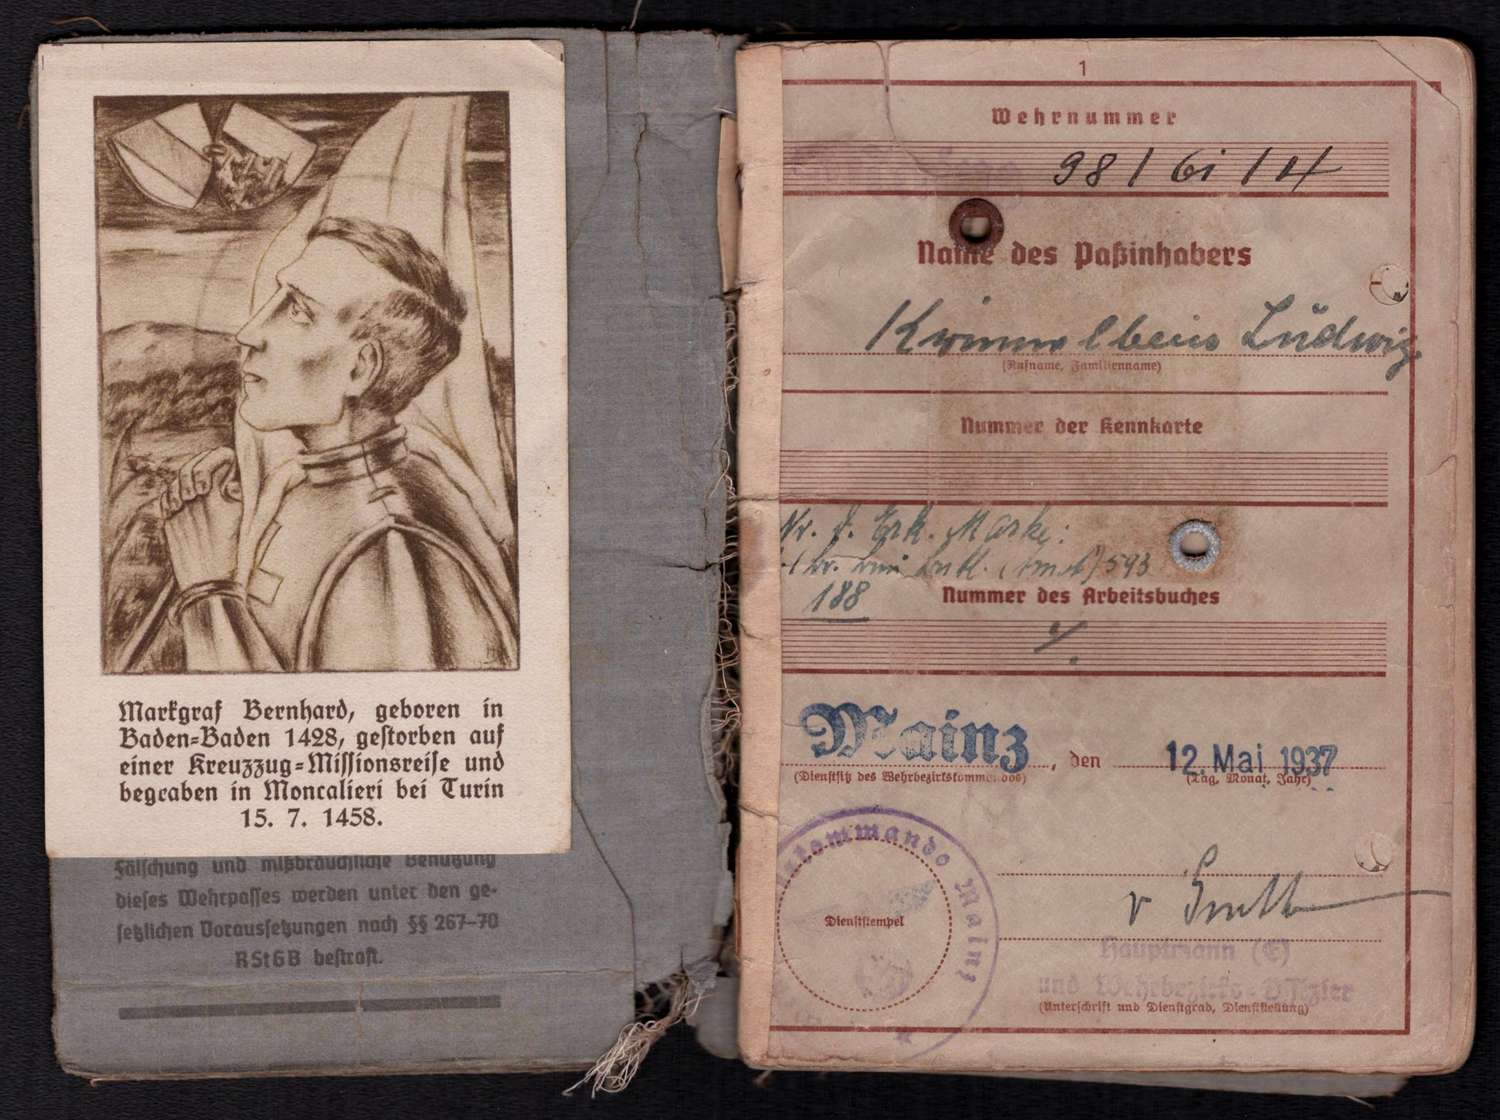 Markgraf Bernhard, geboren in
Baden-Baden 1428, gestorben auf
einer Kreuzzug-Missionsreise und
begraben in Moncalieri bei Turin
15. 7. 1458.
Fälschung und mißbräuchliche Benutzung
dieses Wehrpasses werden unter den ge-
setzlichen Voraussetzungen nach §§ 267-70
RStGB bestraft.
1
Wehrnummer
98/61/4
Name des Paßinhabers
Ludwig
(Rufname, Familienname)
Nummer der Kennkarte
Nr. d. Erk. Marke:
593
188
Nummer des Arbeitsbuches
Mainz, den 12. Mai 1937
(Dienstsitz des Wehrbezirkskommandos) (Tag, Monat, Jahr)
kommando Mainz
Dienststempel
Hauptmann (E)
und Wehrbezirks-Offizier
(Unterschrift und Dienstgrad, Dienststellung)